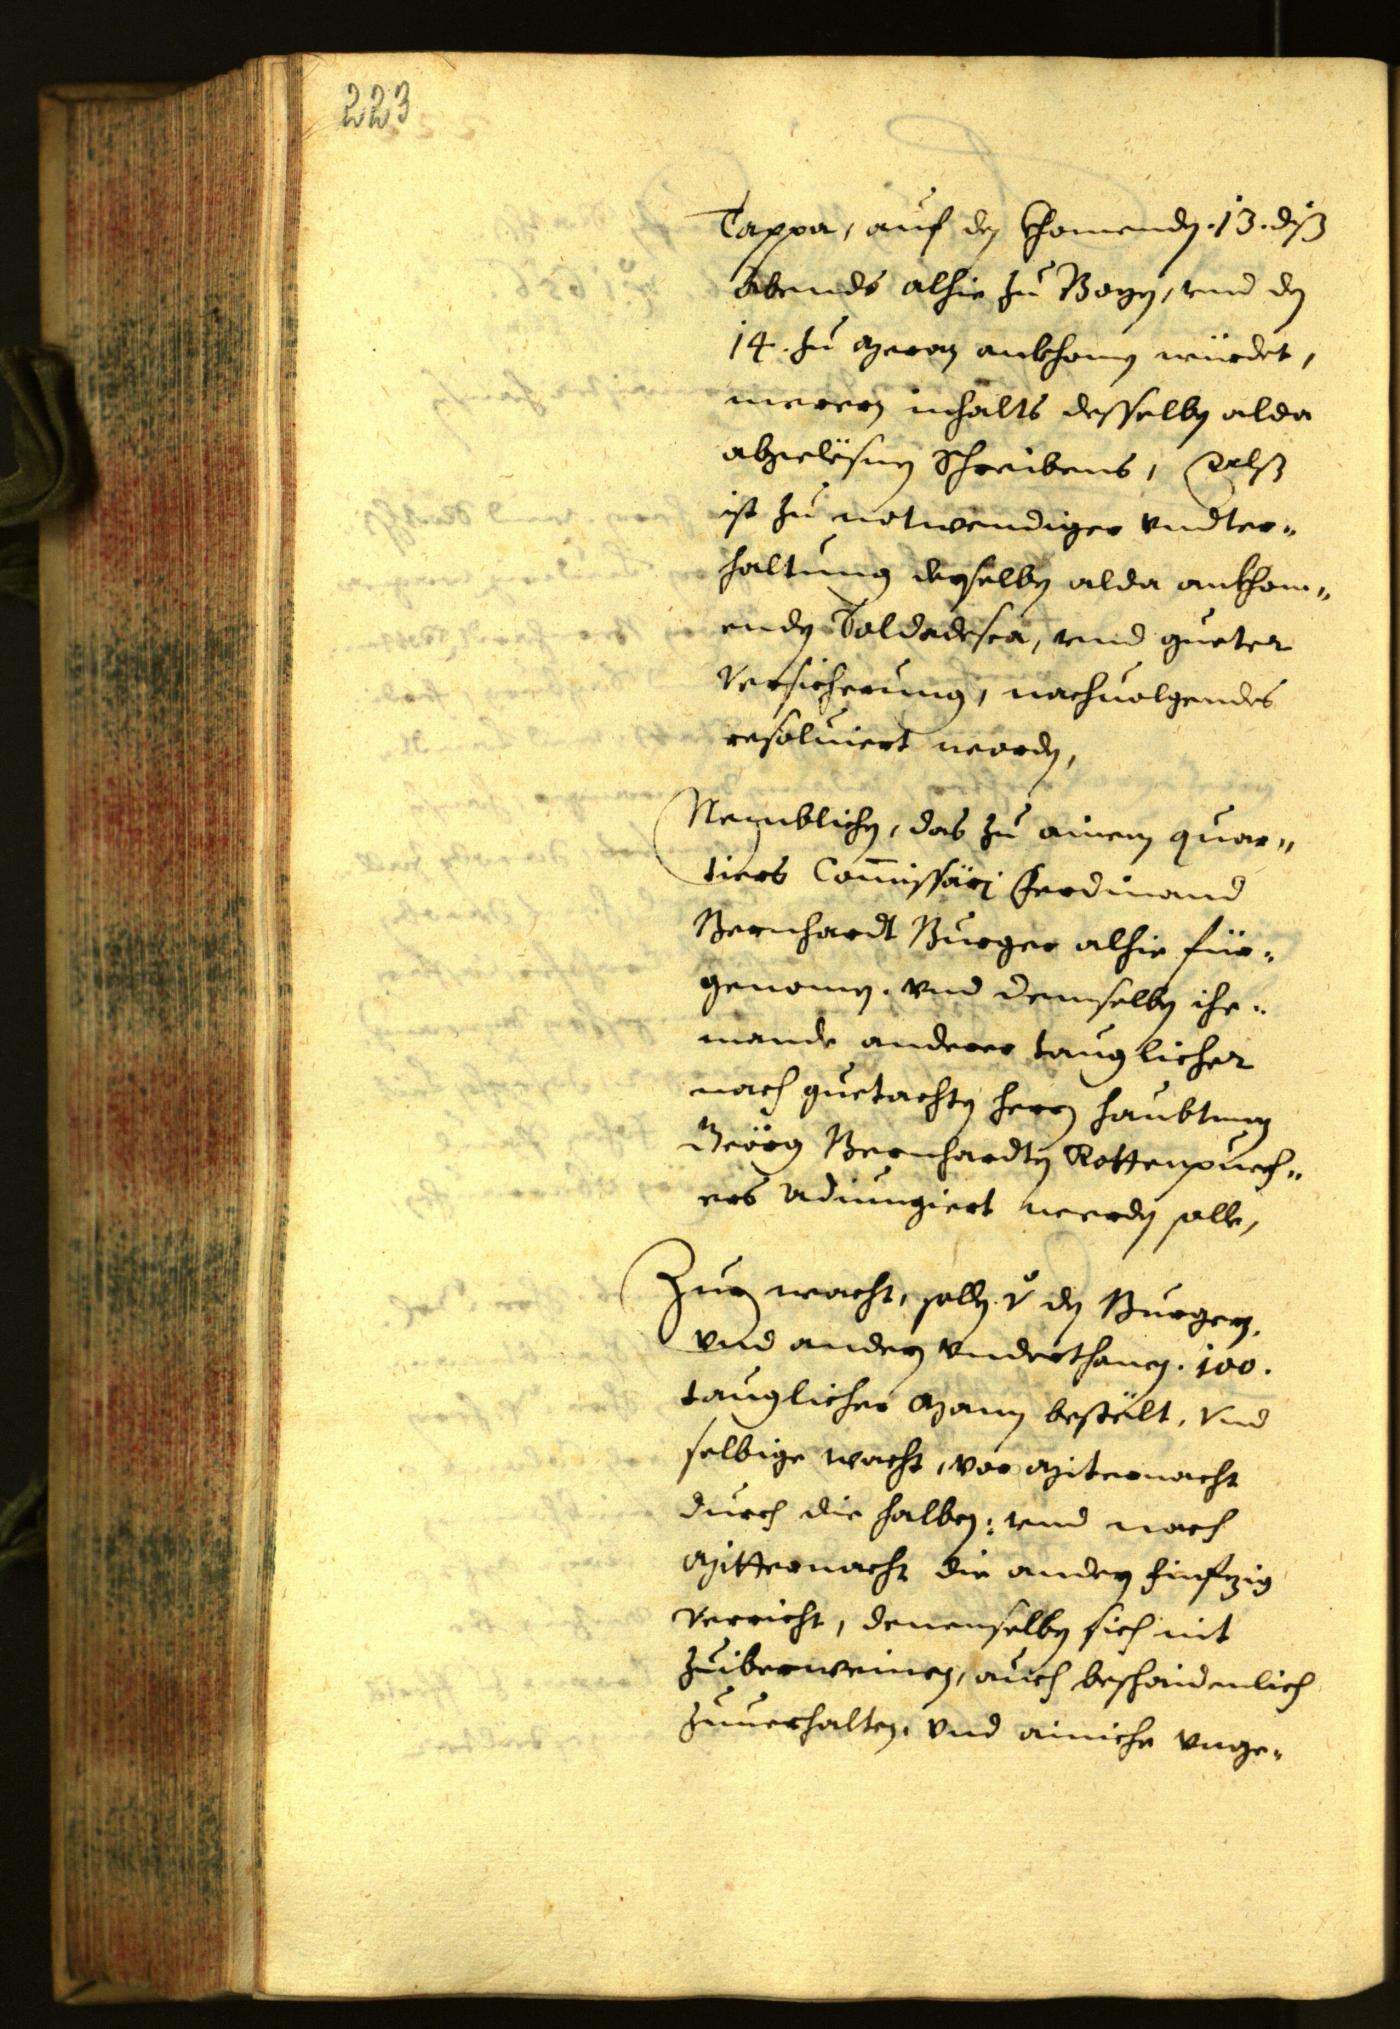 223
Tappa, auf den khomenden .13. diß
Abends alhie zu Bozen, vnd den
14. zu Meran ankhomen würdet,
merern inhalts desselben alda
abgelesnen Schreibens, Alß
ist zu notwendiger vndter„
haltung derselben alda ankhom„
enden Soldadesca, vnd gueter
Versicherung, nachuolgendes
resoluiert worden,
Nemblichen, das zu ainem quar„
tiers Commissärj Ferdinand
Bernhardt Burger alhie für„
genomen. vnd demselben ihe„
mande anderer tauglicher
nach guetachten herrn haubtman
Geörg Bernhardten Rottenpuech„
ers Adiungiert werden solle,
Zur wacht, sollen v̊ den Burgern,
vnd andern vnderthanen. 100.
tauglicher Mann bestölt, Vnd
selbige wacht, vor Miternacht
durch die halben: vnd nach
Mitternacht die andern finfzig
Verricht, denenselben sich nit
zuiberweinen, auch beschaidenlich
zuuerhalten. vnd ainiche vnge„